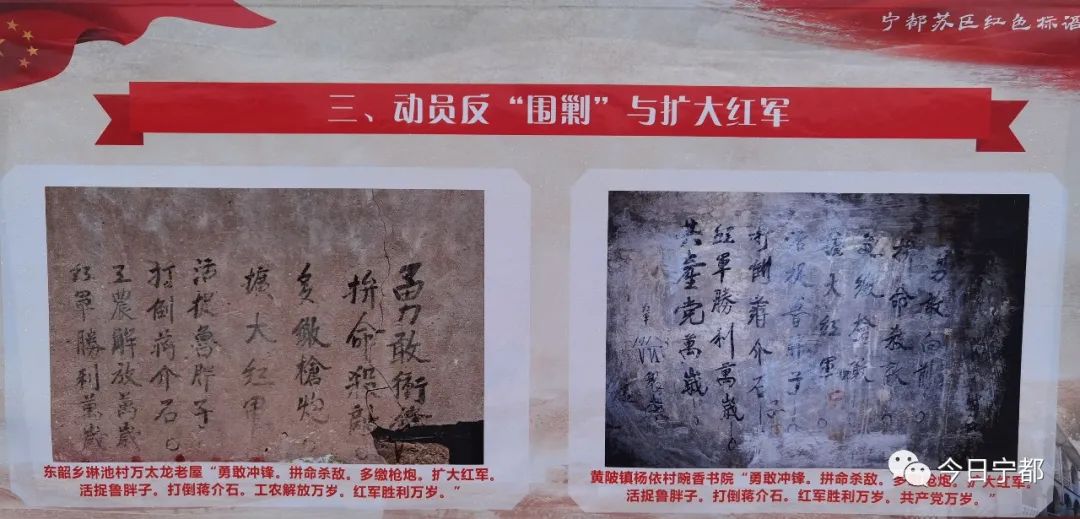 宁都苏区红色标语
三、动员反“围剿”与扩大红军
勇敢衝鋒
拚命殺敵
多繳槍炮
擴大红軍
活捉魯胖子
打倒蒋介石。
工農解放萬歲
紅軍勝利萬歲
东韶乡琳池村万太龙老屋“勇敢冲锋。拼命杀敌。多缴枪炮。扩大红军。
活捉鲁胖子。打倒蒋介石。工农解放万岁。红军胜利万岁。”
勇敢向前。
拚命殺敌。
多缴槍
擴大紅軍。
活捉鲁胖子
打倒蒋介石。
紅軍勝利萬歲。
共產党萬歲。
黄陂镇杨依村畹香书院“勇敢冲锋。拼命杀敌。多缴枪炮。扩大红军。
活捉鲁胖子。打倒蒋介石。红军胜利万岁。共产党万岁。”
今日宁都